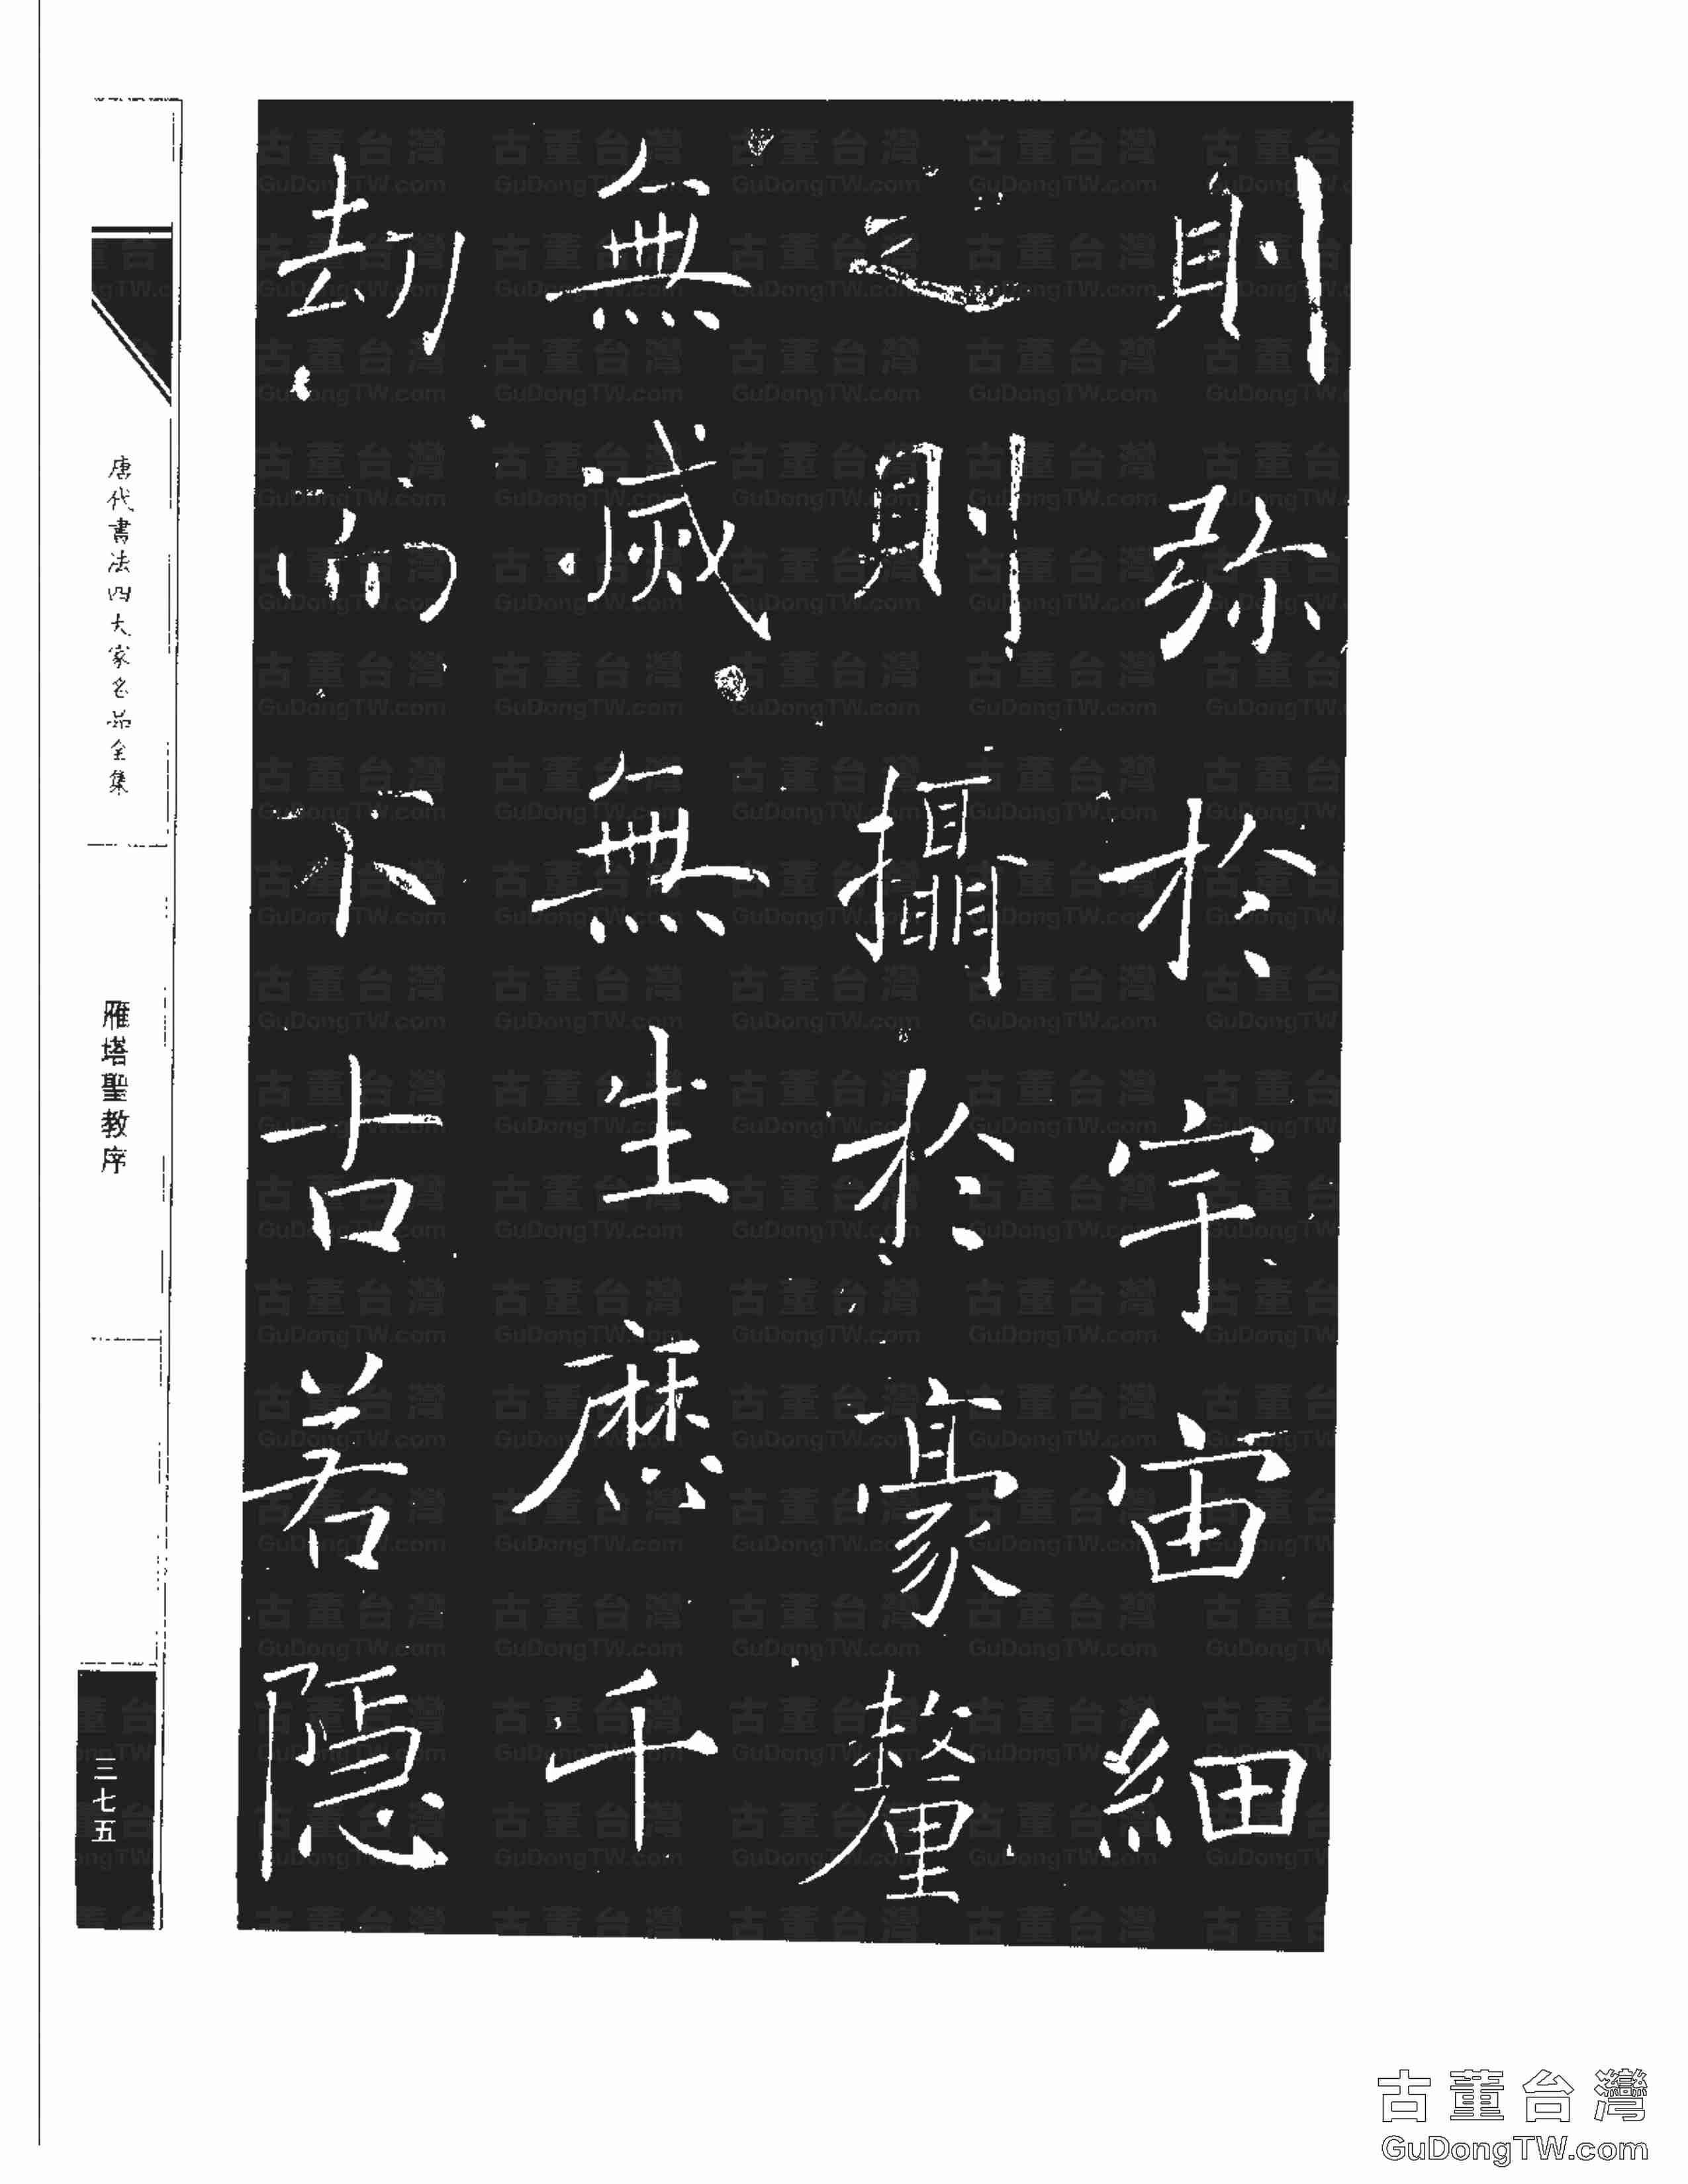 則弥於宇宙細
之則攝於豪釐
無滅無生歷千
劫而不古若隱
唐代書法四大家名品全集
雁塔聖教序
三七五
古董台灣
GuDongTW.com